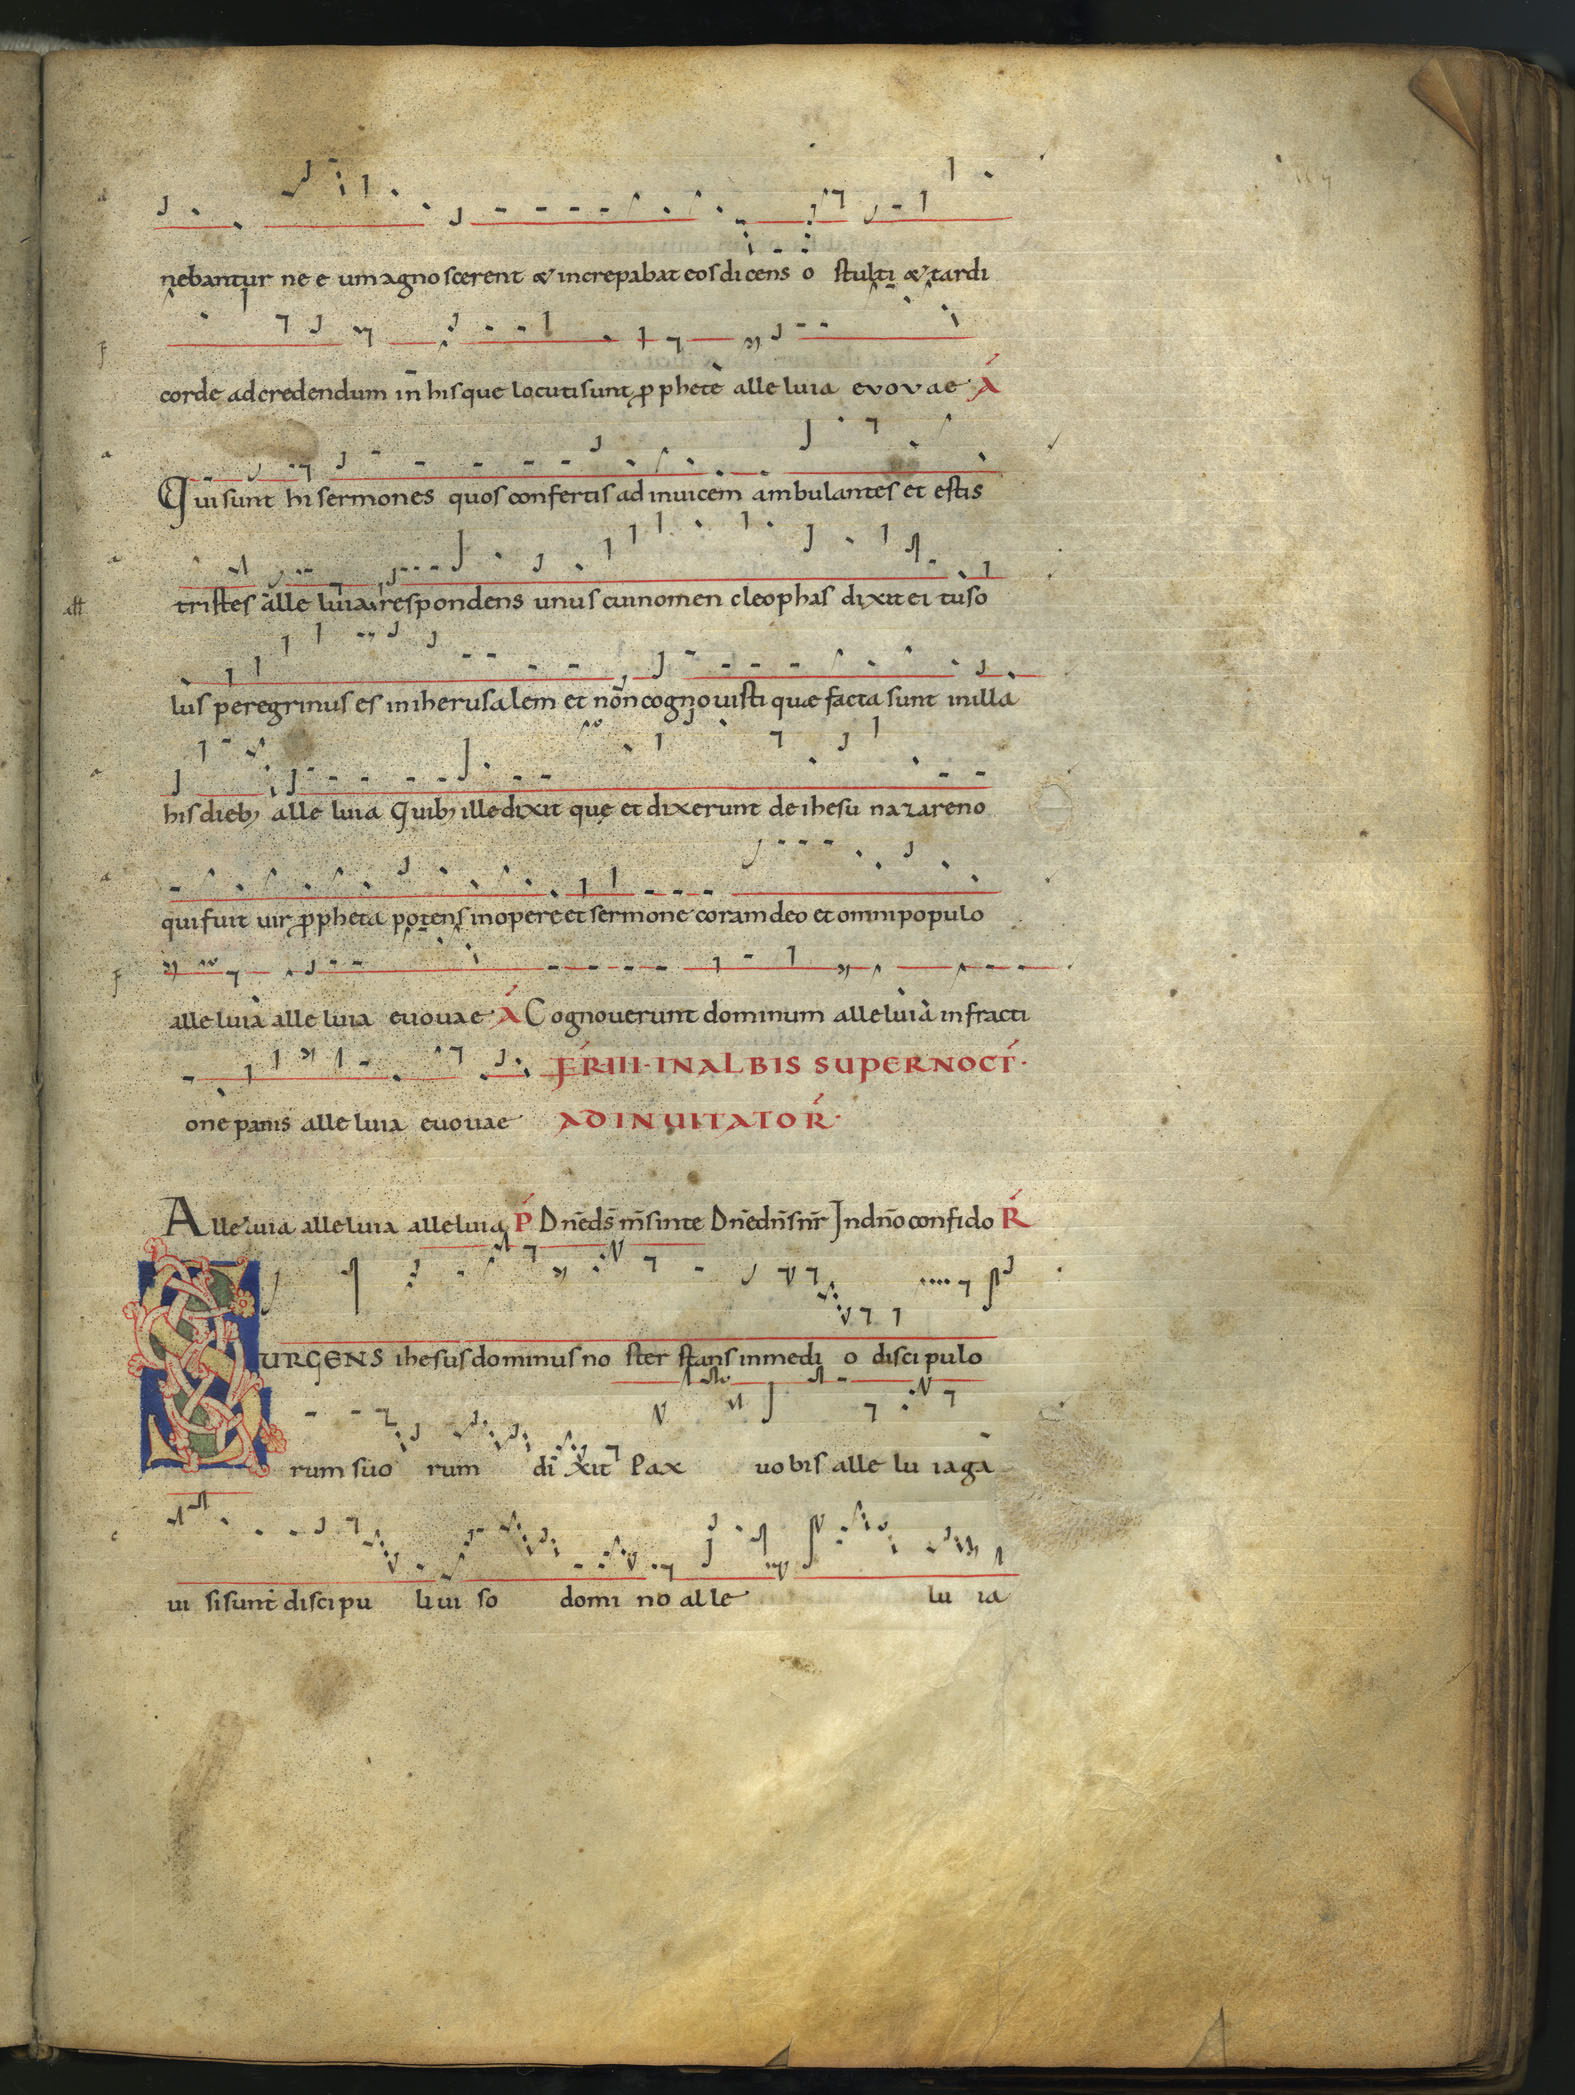 nebantur ne e um agno scerent & increpabat eos dicens o stulti & tardi
corde ad credendum in his que locuti sunt pphete alle luia evovae A
Qui sunt hi sermones quos confertis ad inuicem ambulantes et estis
tristes alle luia respondens unus cui nomen cleophas dixit ei tu so
lus peregrinus es in iherusalem et non cognouisti quæ facta sunt in illa
his dieb; alle luia Quib; ille dixit quę et dixerunt de ihesu nazareno
qui fuit uir ppheta potens in opere et sermone coram deo et omni populo
alle luia alle luia euouae A Cognouerunt dominum alle luia in fracti
one panis alle luia euouae FR III · IN ALBIS SUPER NOCT ·
AD INUITATOR ·
Alle luia alle luia alle luia P Dn̄e ds̄ m̄s in te Dn̄e dn̄s nr̄ In dn̄o confido R
SURGENS ihesus dominus no ster stans in medi o disci pulo
rum suo rum di xit Pax uo bis alle lu ia ga
ui si sunt disci pu li ui so domi no al le lu ia